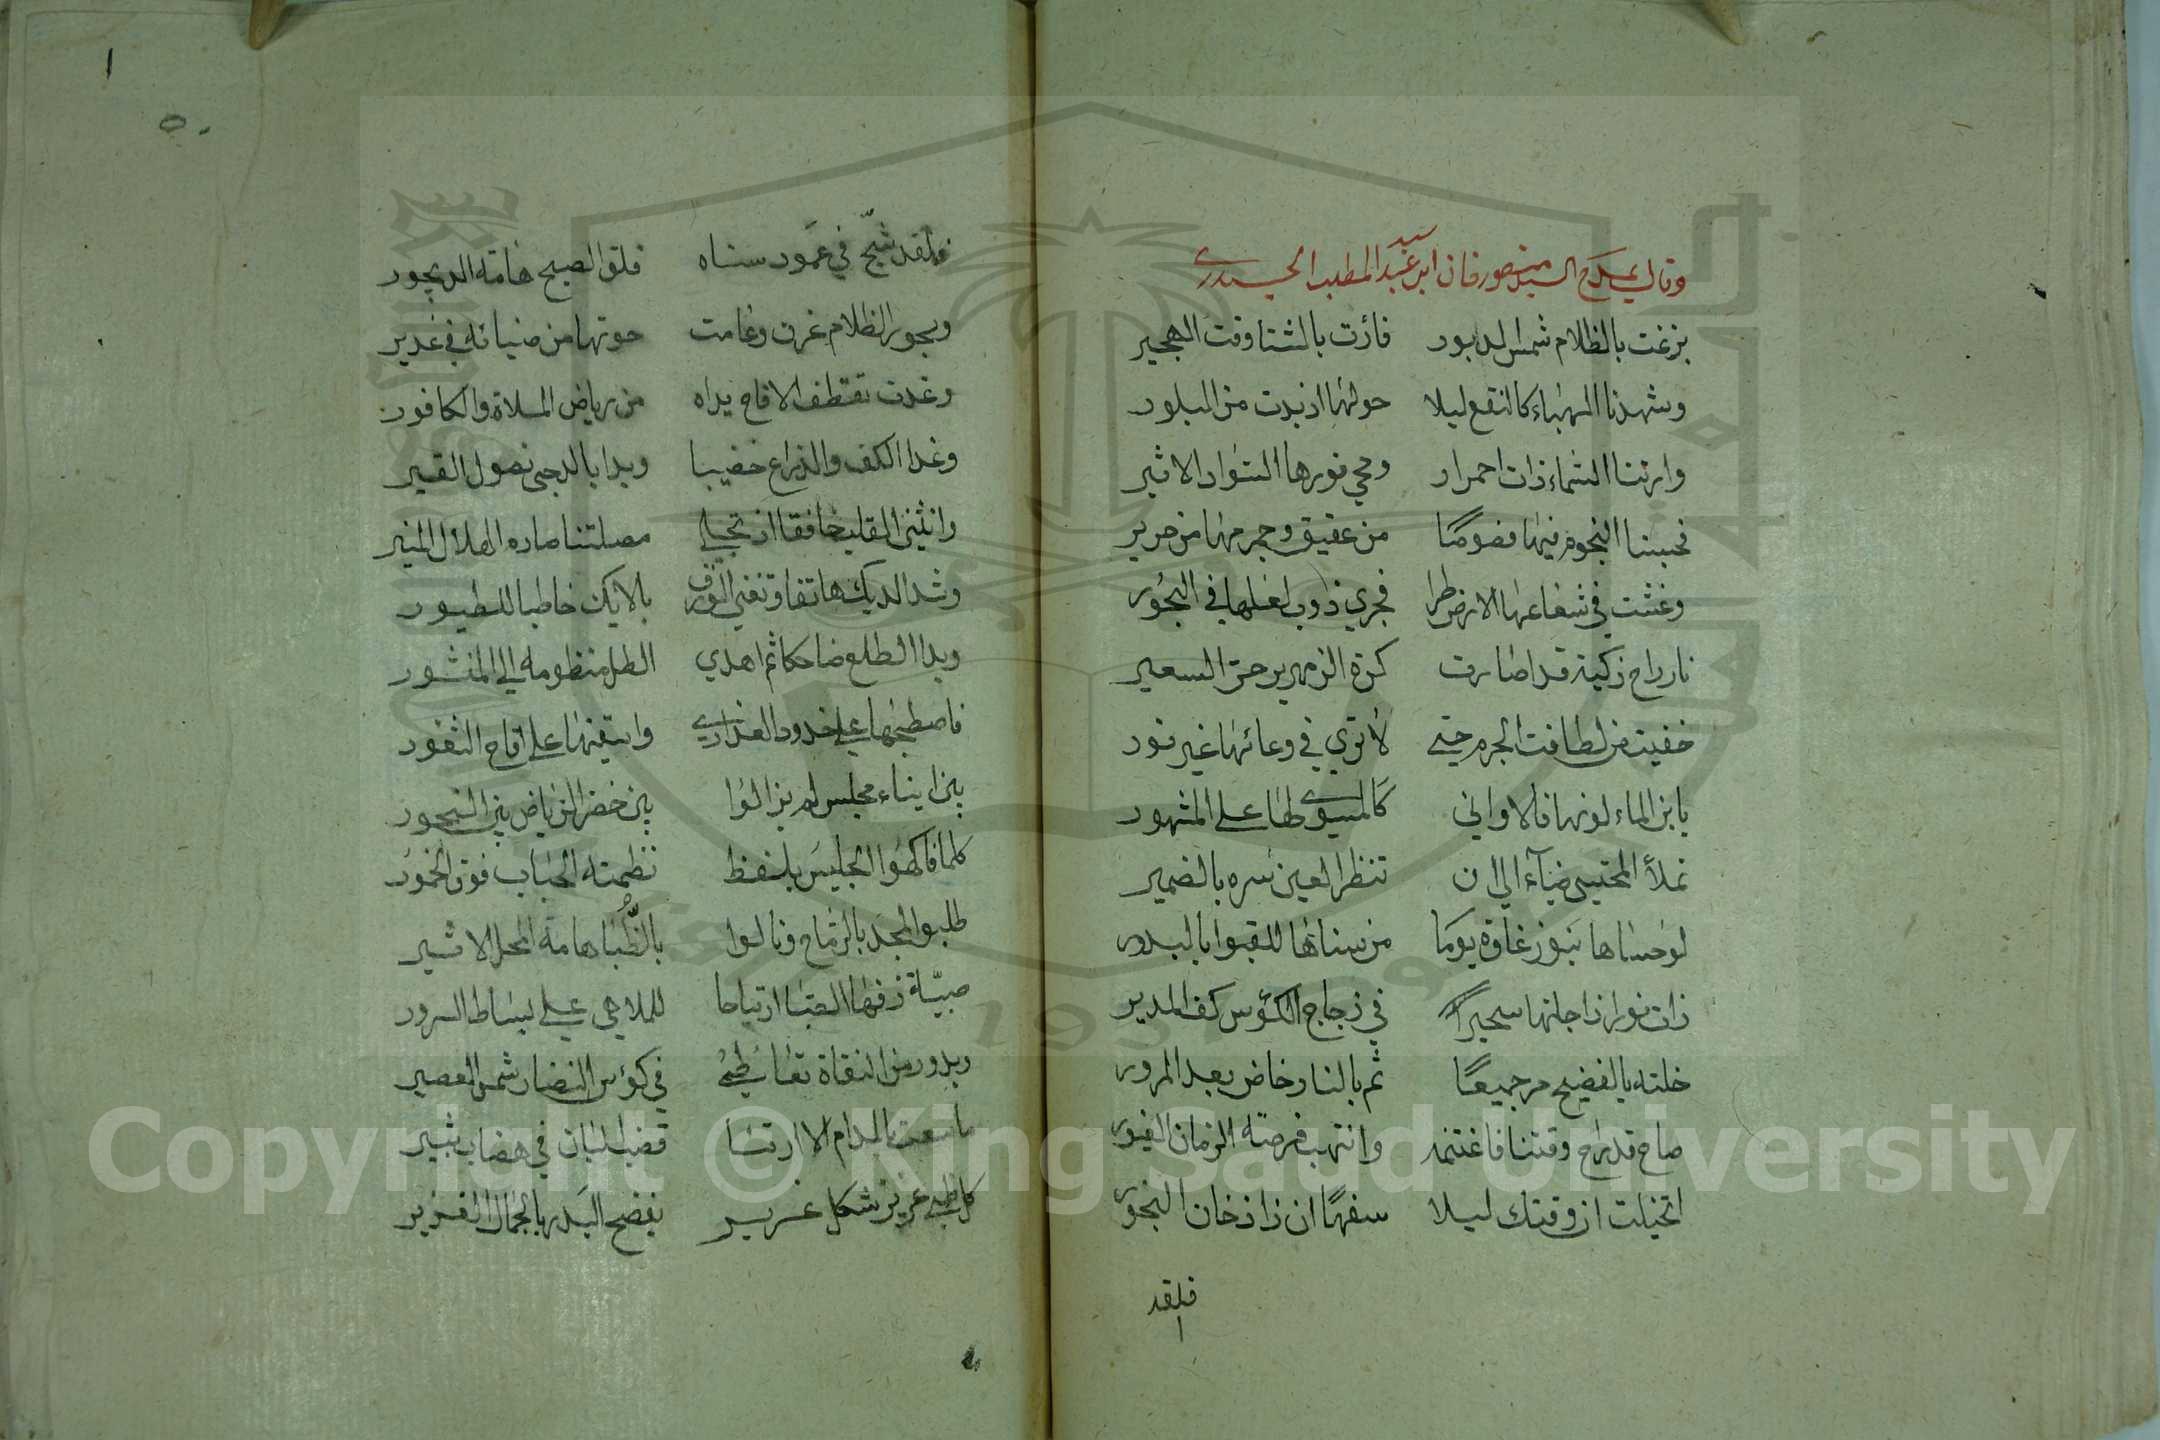 وقال يمدح السيد منصور خان ابن سيد عبد المطلب الحيدري
بزغت بالظلام شمس الديور فأرت بالشتا وقت الهجير
وشهدنا الهباء كالنقع ليلا حولها اذ بدت من البلور
وارتنا السماء ذات احمرار ومحي نورها السواد الاثير
فحسبنا النجوم فيها فصوصًا من عقيق وجرمها من حرير
وغشت في شعاعها الارض طرا فجري ذوب لعلها في البحور
نار راح زكية قد اصارت كرة الزمهرير حر السعير
خفيت من لطافت الجرم حتي لا تري في وعائها غير نور
يا بن الماء لونها فالاواني كالمسوي لها علي المشهور
تملأ المحتسي ضيآء الي ان تنظر العين سره بالضمير
لوحساها بنوزغاوة يومًا من سناها للقبوا بالبدور
ذات نور اذا جلتها سحيرًا في زجاج الكؤس كف المدير
خلته بالفضيح مر جميعًا ثم بالنار خاض بعد المرور
صاح قد راح وقتنا فاغتنمه وانتهب فرصة الزمان الغيور
اتخيلت ان وقتك ليلا سفهًا ان ذا دخان البخور
فلقد
١
٥٠
فلقد شجّ في عمود سناه فلق الصبح هامة الديجور
وبحور الظلام غرن وعامت حوتها من ضيائه في غدير
وغدت تقطف الاقاح يداه من رياض السلاة والكافور
وغدا الكف والذراع خضيبا وبدا بالدجي نصول القير
وانثني القلب خافقا اذ تجلي مصلتنا صاره الهلال المنير
وشدا الديك هاتفا وتغني الورق بالايك خاطبا للطيور
وبدا الطلع ضاحكا ثم اهدي الطل منظومه الي المنثور
فاصطبحها علي خدود العذاري واسقنيها علي اقاح الثغور
بين ابناء مجلس لم يزالوا بين خضر الرياض بين النحور
كلما فاكهوا الجليس بلفظ نظمته الحباب فوق الخمور
طلبوا المجد بالرماح ونالوا بالظُّبا هامة المحل الاثير
صبيّة زفها الصبا ارتياحا للملاهي علي بساط السرور
وبدور من النقاة تعاطي في كؤس النضار شمس العصير
ما سعت بالمدام الا ارتنا قضب البان في هضاب ثبير
كل ظبي عزيز شكل غرير يفضح البدر بالجمال الغزير